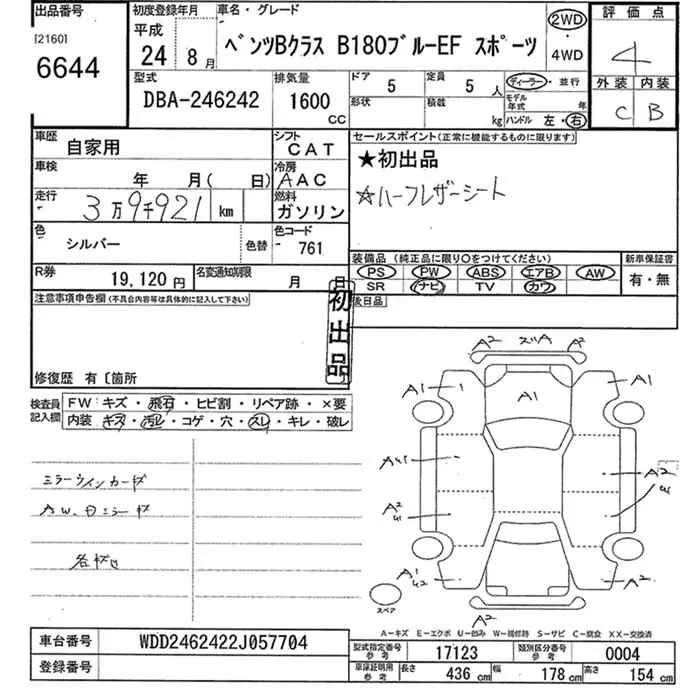 出品番号 初度登録年月 車名・グレード 評価点
[2160] 平成
6644 24年 8月 ベンツBクラス B180ブルーEF スポーツ 2WD・4WD 4
型式 排気量 ドア 5 定員 5人 ディーラー・並行 外装 内装
DBA-246242 1600cc 形状 積載 kg モデル年式 年 C B
ハンドル 左・右
車歴 自家用 シフト CAT セールスポイント(正常に機能するものに限ります)
車検 年 月( 日) 冷房 AAC ★初出品
走行 3万9千921km 燃料 ガソリン ☆ハーフレザーシート
色 シルバー 色替 色コード 761
装備品(純正品に限り○をつけてください) 新車保証書
R券 19,120円 名変通知期限 月 日 PS PW ABS エアB AW 有・無
SR ナビ TV カワ
注意事項申告欄(不具合内容等は具体的に記入して下さい) 初出品 後日品
修復歴 有〔箇所
検査員記入欄 FW:キズ・飛石・ヒビ割・リペア跡・×要
内装:キズ・汚レ・コゲ・穴・スレ・キレ・破レ
ミラーウインカーキズ
A2 スリA A2
A1 A1 A1
A2
A2 A2
A1 A2
スペア A2
A-キズ E-エクボ U-凹み W-補修跡 S-サビ C-腐食 XX-交換済
車台番号 WDD2462422J057704 型式指定番号 参考 17123 類別区分番号 参考 0004
登録番号 車庫証明用 参考 長さ 436cm 幅 178cm 高さ 154cm